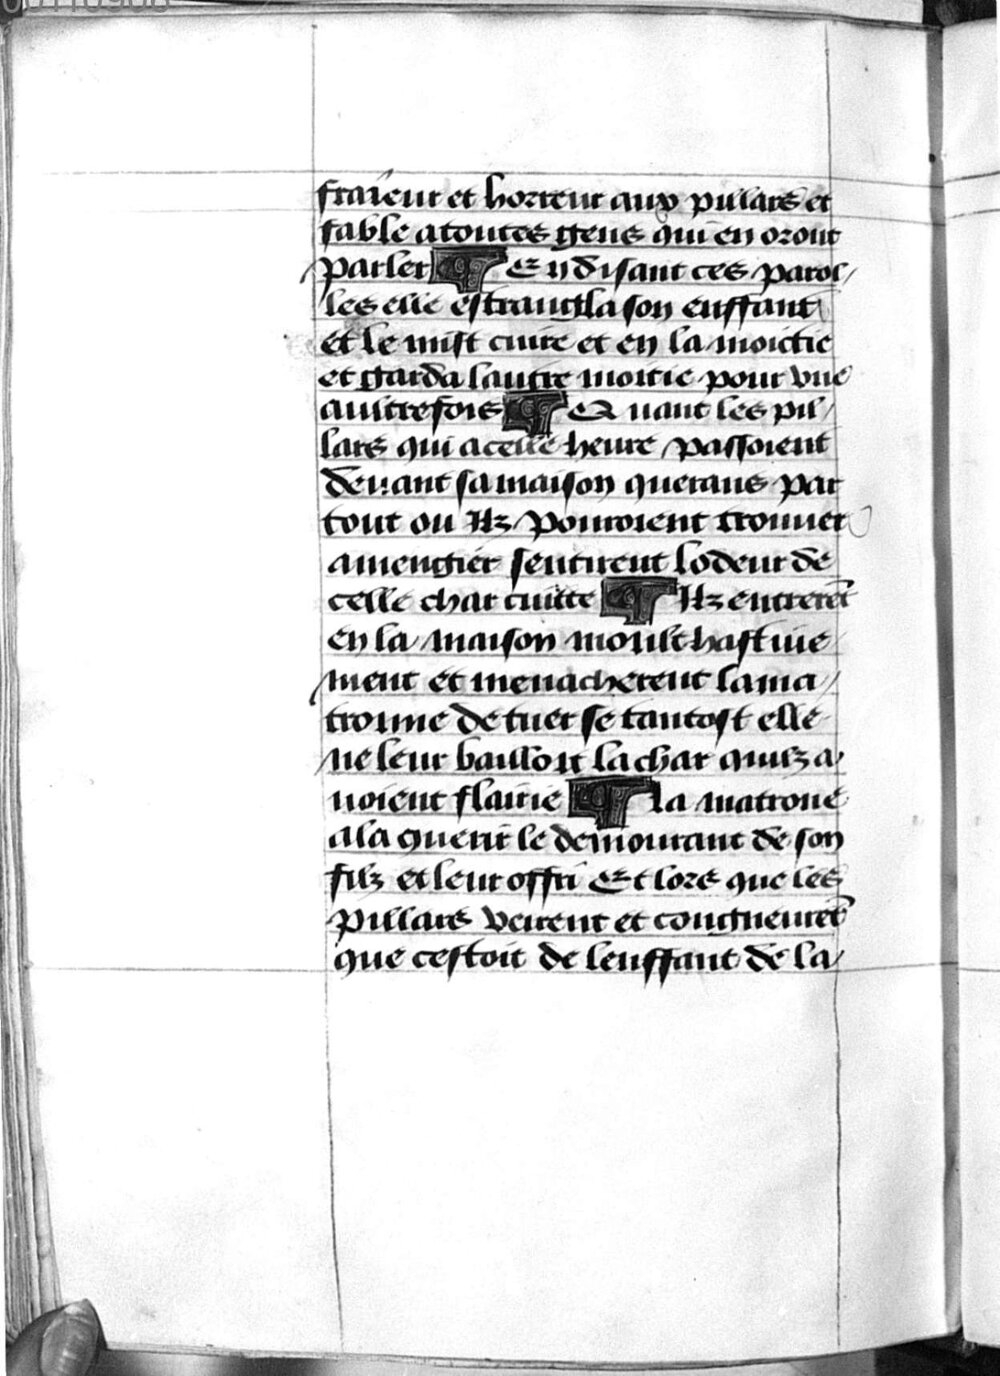 fraieur et horreur aux pillars et
fable a toutes gens qui en oront
parler ¶ En disant ces parol/
les elle estrangla son enffant
et le mist cuire et en la moictie
et garda lautre moitie pour vne
aultrefois ¶ Quant les pil/
lars qui a celle heure passoient
deuant sa maison querans par
tout ou Ilz pouroient trouuer
a mengier sentirent lodeur de
celle char cuitte ¶ Ilz entrerēt
en la maison moult hastiue
ment et menacherent la ma/
tronne de tuer se tantost elle
ne leur bailloit la char quilz a/
uoient flairie ¶ La matrone
ala querir le demourant de son
filz et leur offri Et lors que les
pillars veirent et congneurēt
que cestoit de lenffant de la/